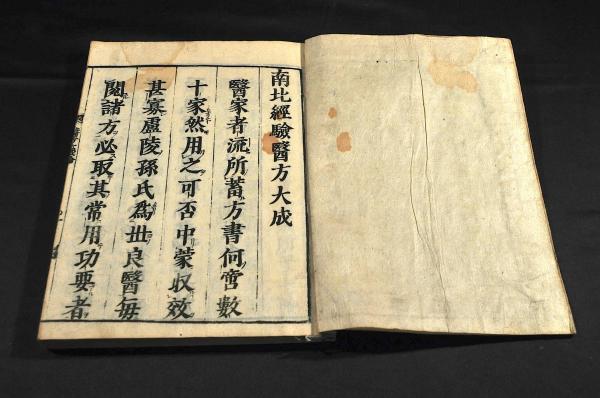 南北經驗醫方大成
醫家者流所蓄方書何啻數
十家然用之可否中蒙收效
甚寡盧陵孫氏為世良醫每
閱諸方必取其常用功要者